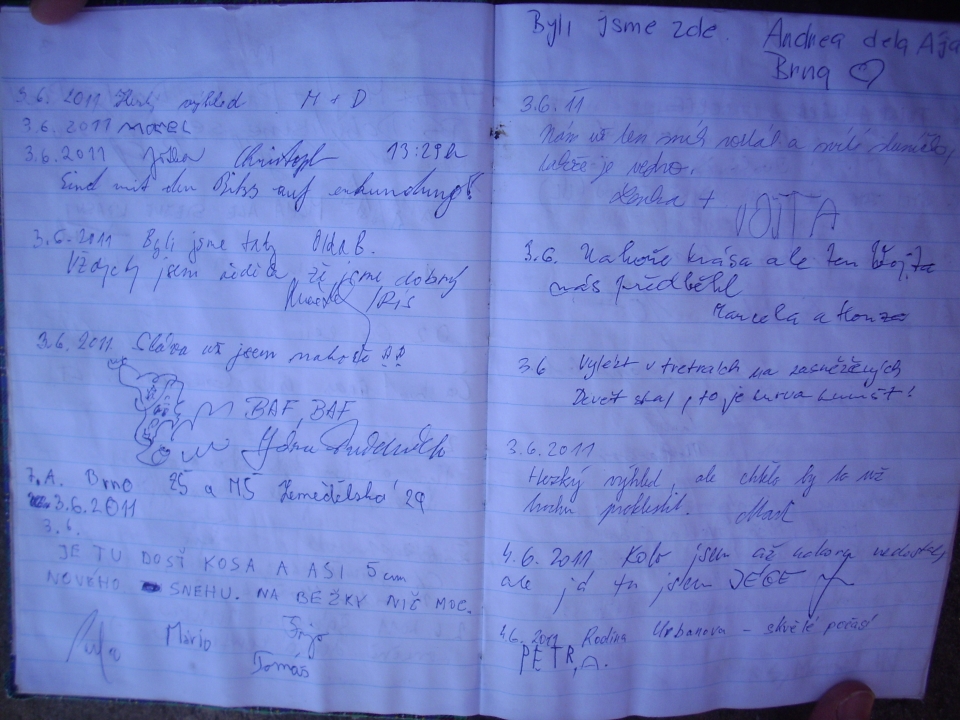 3.6. 2011 Hezký výhled M + D
3.6.2011 Marek
3.6.2011 Christoph 13:29h
Sind mit den Bikes auf erkundung!
3.6.2011 Byli jsme taky Olda B.
Vždycky jsem věděla, že jsme dobrý
IRIS
3.6.2011 Sláva už jsem nahoře !!
BAF, BAF
7.A. Brno ZŠ a MŠ Zemědělská 29
3.6.2011
3.6.
JE TU DOSŤ KOSA A ASI 5 cm
NOVÉHO SNEHU. NA BEŽKY NIČ MOC.
Mário
Tomáš
Byli jsme zde. Andrea dela Ája
Brno ♡
3.6.11
Nám už jen smích a
Lenka + VOJTA
3.6. Nahoře krása ale ten Vojta
nás předběhl
Marcela a Honza
3.6 Vylézt v tretrách na zasněžených
Devět skal, to je kurva kumšt!
3.6.2011
Hezký výhled, ale chtělo by to už
trochu proklestit.
4.6.2011, Kolo jsem až nahoru nedostal,
ale já tu jsem
4.6. 2011 Rodina Urbanova – skvělé počasí
PETR, A.